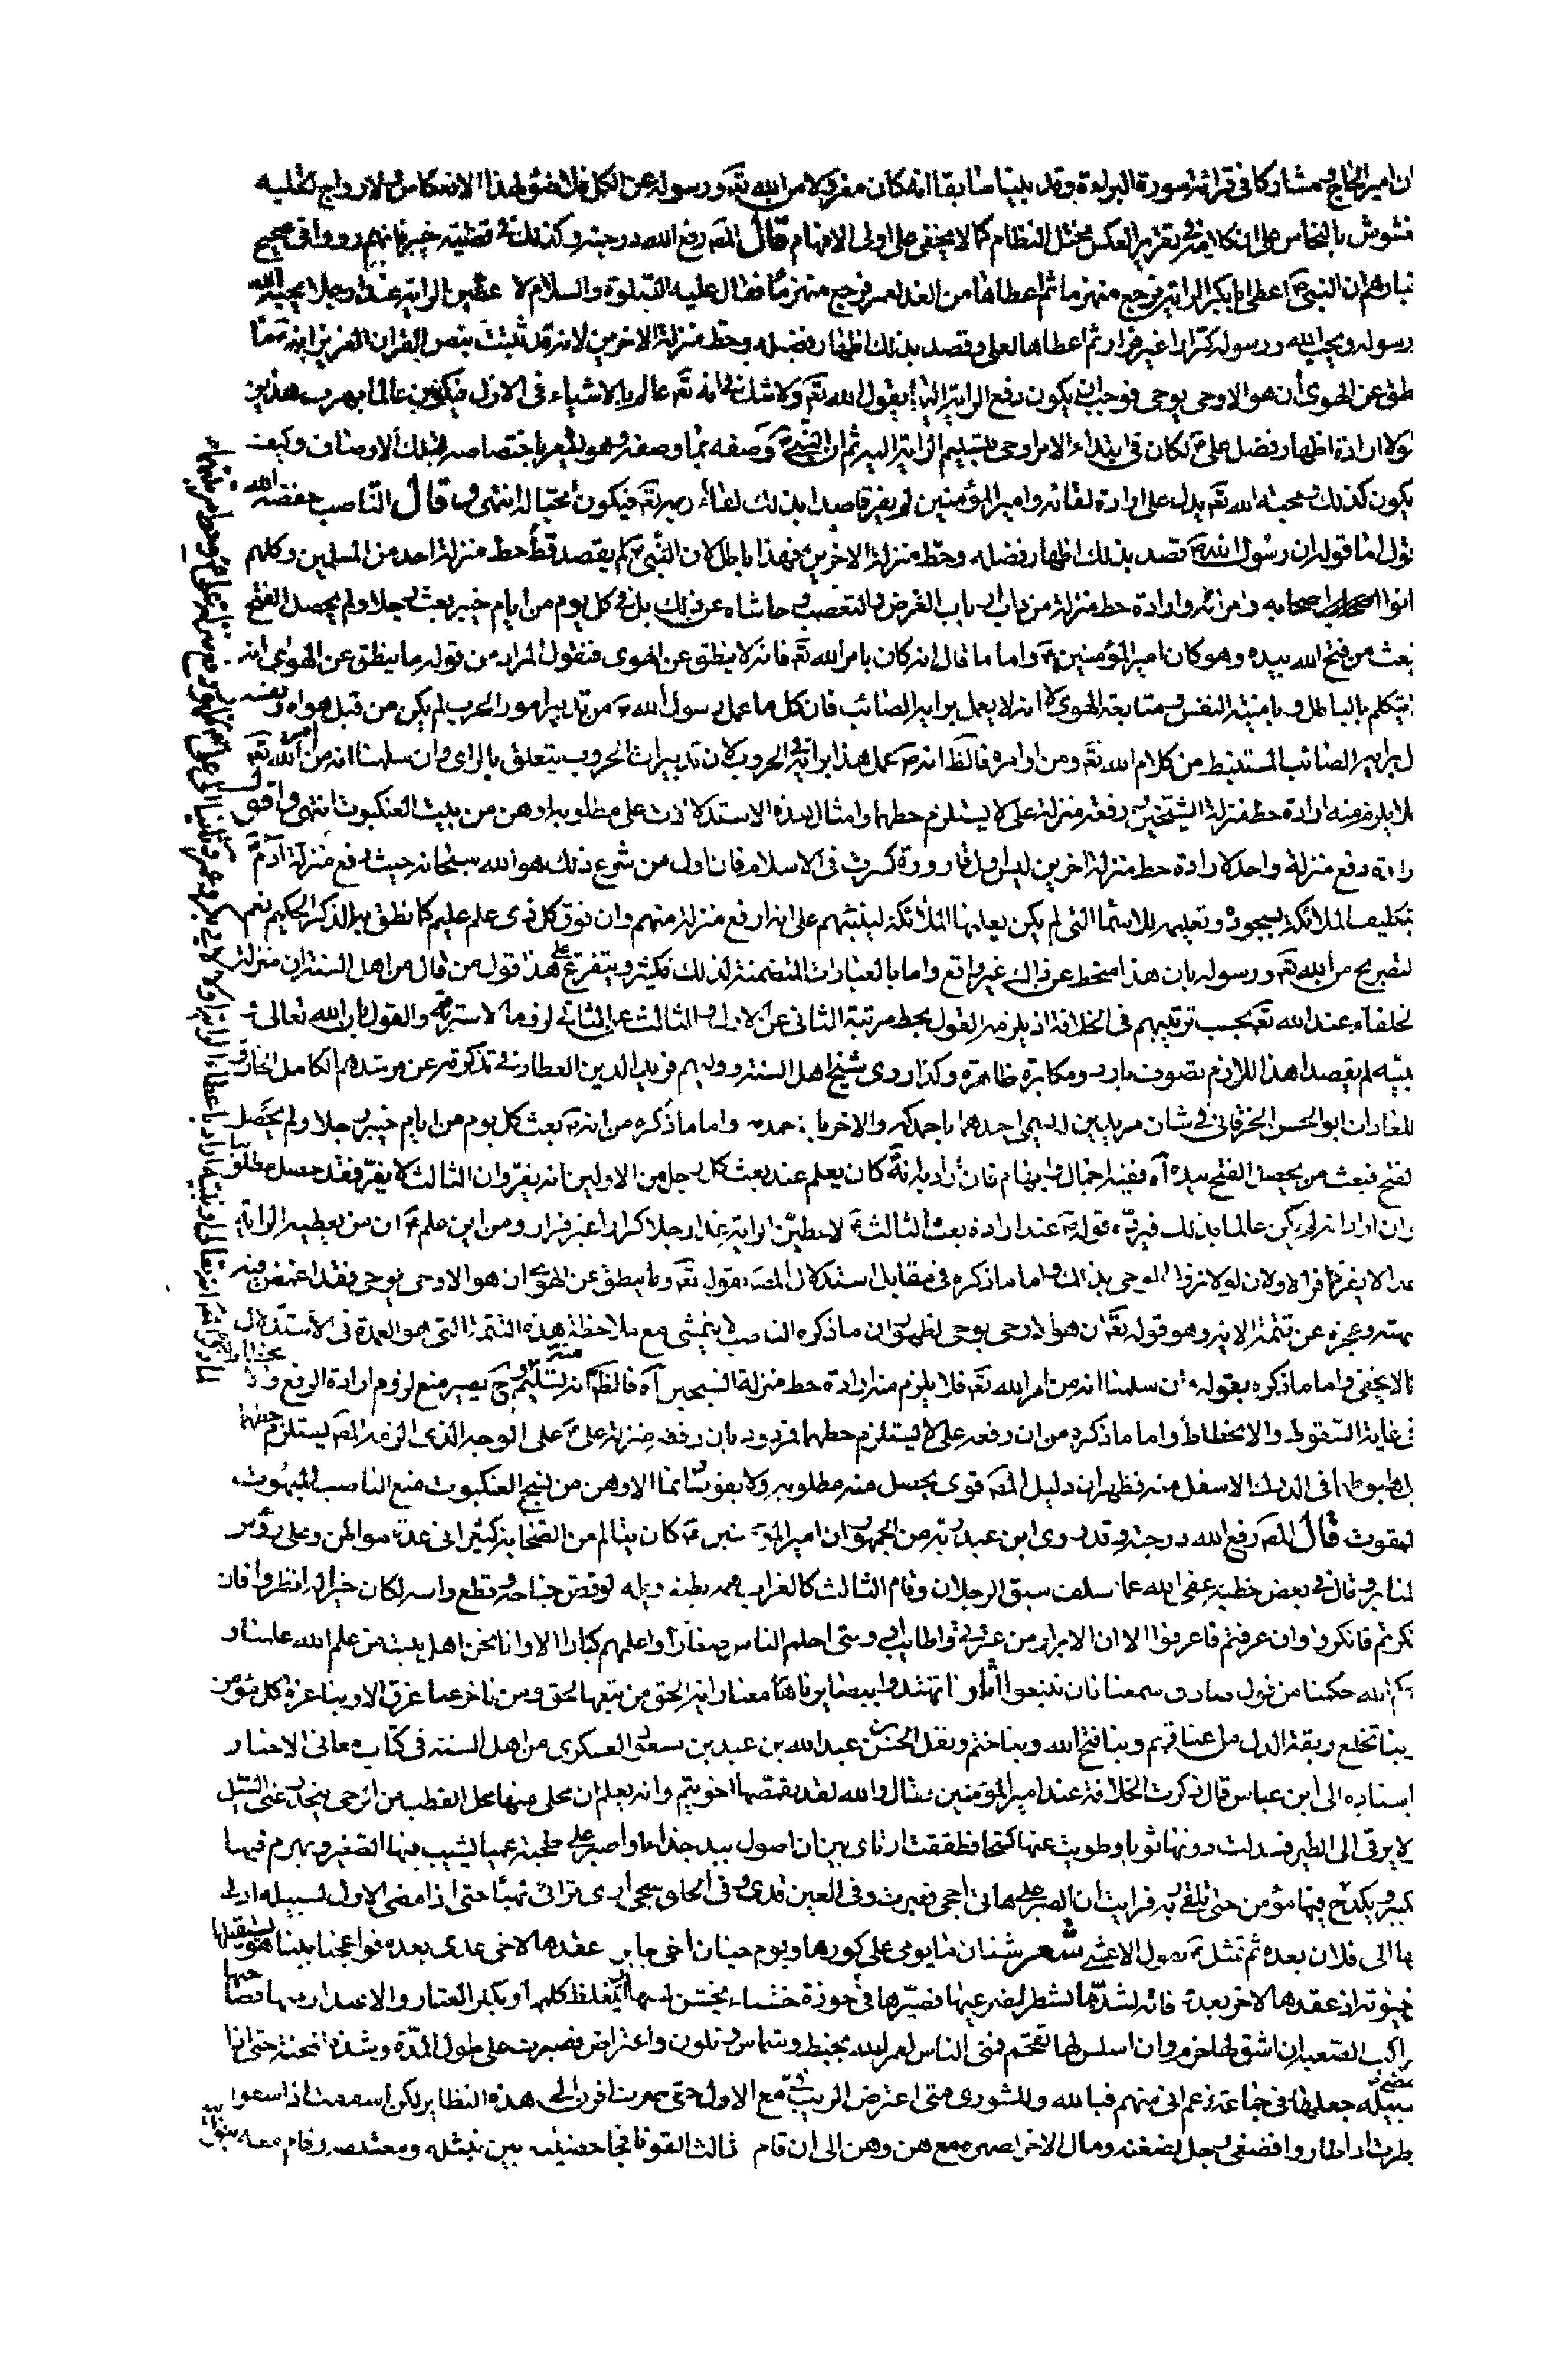 ان امير الحاج و مشاركا في قرائة سورة البراءة وقد بينا سابقا انه كان مفر من الله تعه ورسوله عن الكل فلا ضوء لهذا الانعكاس ولا رواج لقلبه
نشوش بالنحاس على ان كلامه في تقرير العكس مختل النظام كما لا يخفى على اولى الافهام قال المصه رفع الله درجته وكذلك في قضية خيبر فانهم رووا في صحيح
خبارهم ان النبى ص اعطى ابا بكر الراية فرجع منهزما ثم اعطاها من الغد لعمر فرجع منهزما فقال عليه الصلوة والسلام لا عطين الراية غدا رجلا يحبه الله
رسوله ويحب الله ورسوله كرارا غير فرار ثم اعطاها لعلى وقصد بذلك اظهار فضله وحط منزلة الاخرين لانه قد ثبت بنص القران العزيز انه ما
طق عن الهوى ان هو الا وحى يوحى فوجب ان يكون دفع الراية اليهما بقول الله تعه ولا شك في انه تعه عالم بالاشياء في الازل فيكون عالما بهرب هذين
ولا ارادة اظهار فضل على ع لكان في ابتداء الامر اوحى بتسليم الراية اليه ثم ان النبى ص وصفه بما وصفه وهو يشعر باختصاصه بتلك الاوصاف وكيف
يكون كذلك و محبة الله تعه يدل على ارادة لقائه وامير المؤمنين لم يفر قاصدا بذلك لقاء ربه تعه فيكون محبا له انتهى و قال الناصب خفضه الله
نول اما قوله ان رسول الله ص قصد بذلك اظهار فضله وحط منزلة الاخرين فهذا باطل لان النبى ص لم يقصد قط حط منزلة احد من المسلمين وكلهم
انوا اصحابه وامرائه وارادة حط منزلة من باب الغرض والتعصب و حاشاه عن ذلك بل في كل يوم من ايام خيبر بعث رجلا ولم يحصل الفتح
بعث من فتح الله بيده وهو كان امير المؤمنين ع واما ما قال انه كان بامر الله تعه فانه لا ينطق عن الهوى فنقول المراد من قوله ما ينطق عن الهوى انه
يتكلم بالباطل و بامنية النفس و متابعة الهوى لا انه لا يعمل برايه الصائب فان كل ما عمل رسول الله ص من تدبير امور الحرب لم يكن من قبل هواه ونفسه
ل برايه الصائب المستنبط من كلام الله تعه ومن اوامره فالظ انه ص عمل هذا برايه في الحروب لان تدبيرات الحروب يتعلق بالراى وان سلمنا انه من امر الله تعه
لا يلزم منه ارادة حط منزلة الشيخين و رفعة منزلة على لا يستلزم حطهما وامثال هذه الاستدلالات على مطلوبه اوهن من بيت العنكبوت انتهى واقول
رادة رفع منزلة واحد لارادة حط منزلة اخرين ليس باول قارورة كسرت في الاسلام فان اول من شرع ذلك هو الله سبحانه حيث رفع منزلة آدم
تكليف الملائكة بسجوده وتعليمه للاسماء التى لم يكن يعلمها الملائكة لينبههم على انه ارفع منزلة منهم وان فوق كل ذى علم عليم كما نطق به الذكر الحكيم نعم
لتصريح من الله تعه ورسوله بان هذا منحط عن ذاك غير واقع واما بالعبارات المتضمنة لذلك فكثير ويتفرع على هذا قول من قال من اهل السنة ان منزلة
لخلفاء عند الله تعه بحسب ترتيبهم في الخلافة اذ يلزمه القول بحط مرتبة الثانى عن الاول و الثالث عن الثانى لزوما لا سترة فيه والقول بان الله تعالى و
نبيه لم يقصدا هذا اللازم تصوف بارد ومكابرة ظاهرة وكذا روى شيخ اهل السنة ووليهم فريد الدين العطار في تذكرته عن مرشدهم الكامل الخارق
للعادات ابو الحسن الخرقانى في شان مريدين له يسمى احدهما باحمدكه والاخر با حمدمه واما ما ذكره من انه ص بعث كل يوم من ايام خيبر رجلا ولم يحصل
لفتح فبعث من يحصل الفتح بيده آه ففيه اجمال و ابهام فان اراد به انه كان يعلم عند بعث كل رجل من الاولين انه يفر وان الثالث لا يفر فقد حصل مطلوبنا
وان اراد انه لم يكن عالما بذلك فيرده قوله ص عند ارادة بعث الثالث لاعطين الراية غدا رجلا كرارا غير فرار ومن اين علم ص ان من يعطيه الراية
غدا لا يفر كما فر الاولان لولا نزول الوحى بذلك واما ما ذكره في مقابل استدلال المصه بقوله تعه وما ينطق عن الهوى ان هو الا وحى يوحى فقد اغمض فيه
بهته وعجزه عن تتمة الاية وهو قوله تعه ان هو الا وحى يوحى لظهور ان ما ذكره الناصب لا يتمشى مع ملاحظة هذه التتمة التى هو العمدة في الاستدلال
كما لا يخفى واما ما ذكره بقوله وان سلمنا انه من امر الله تعه فلا يلزم منه ارادة حط منزلة الشيخين آه فالظ انه تسليم وح يصير منع لزوم ارادة الرفع
في غاية السقوط والانحطاط واما ما ذكره من ان رفعة على لا يستلزم حطهما فمردود بان رفعه منزلة على ع على الوجه الذى الزمه المصه يستلزم حطهما
بل هبوطهما في الدرك الاسفل منه فظهر ان دليل المصه قوى يحصل منه مطلوبه ولا يفوت وانما الاوهن من نسج العنكبوت منع الناصب المبهوت
الممقوت قال المصه رفع الله درجته وقد روى ابن عبد ربه من الجمهور ان امير المؤمنين ع كان يتألم من الصحابة كثيرا في عدة مواطن وعلى رؤس
المنابر وقال في بعض خطبه عفى الله عما سلف سبق الرجلان وقام الثالث كالغراب همه بطنه ويله لو قص جناحه و قطع راسه لكان خيرا له انظروا فان
نكرتم فانكروا وان عرفتم فاعرفوا الا ان الابرار من عترتى واطايب ارومتى احلم الناس صغارا واعلمهم كبارا الا وانا نحن اهل بيت من علم الله علمنا و
بحكم الله حكمنا من قول صادق سمعنا فان تتبعوا آثارنا تهتدوا ببصايرنا معنا راية الحق من تبعها لحق ومن تاخر عنها غرق الا وبنا عزة كل مؤمن
بنا تخلع ربقة الذل من اعناقهم وبنا فتح الله وبنا ختم ونقل الحسن بن عبد الله بن عبد بن سعيد العسكرى من اهل السنة في كتاب معانى الاخبار
باسناده الى ابن عباس قال ذكرت الخلافة عند امير المؤمنين فقال والله لقد تقمصها اخو تيم وانه يعلم ان محلى منها محل القطب من الرحى ينحدر عنى السيل
لا يرقى الى الطير فسدلت دونها ثوبا وطويت عنها كشحا وطفقت ارتاى بين ان اصول بيد جذاء او اصبر على طخية عمياء يشيب فيها الصغير ويهرم فيها
كبير ويكدح فيها مؤمن حتى يلقى ربه فرايت ان الصبر على هاتى احجى فصبرت وفي العين قذى و في الحلق شجى ارى تراثى نهبا حتى اذا مضى الاول لسبيله ادلى
بها الى فلان بعده ثم تمثل ع بقول الاعشى شعر شتان ما يومى على كورها ويوم حيان اخى جابر عقدها لاخى عدى بعده فوا عجبا بينا هو يستقيلها
في حيوته اذ عقدها لاخر بعد وفاته لشد ما تشطرا ضرعيها فصيرها في حوزة خشناء يخشن مسها ويغلظ كلمها ويكثر العثار والاعتذار منها فصاحبها
كراكب الصعبة ان اشنق لها خرم وان اسلس لها تقحم فمنى الناس لعمر الله بخبط وشماس و تلون واعتراض فصبرت على طول المدة و شدة المحنة حتى اذا مضى
لسبيله جعلها في جماعة زعم انى منهم فيا لله وللشورى متى اعترض الريب في مع الاول حتى صرت اقرن الى هذه النظاير لكن اسففت اذ اسفوا
وطرت اذ طاروا فصغى رجل لضغنه ومال الاخر لصهره مع هن وهن الى ان قام ثالث القوم نافجا حضنيه بين نثيله ومعتلفه وقام معه بنو